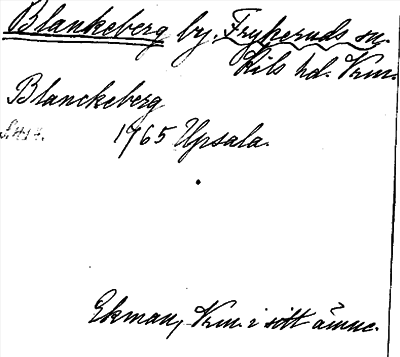 Blankeberg by. Frykeruds sn.
Kils hd. Vrm.
Blanckeberg
1765 Upsala.
Ekman, Vrm. i sitt ämne.